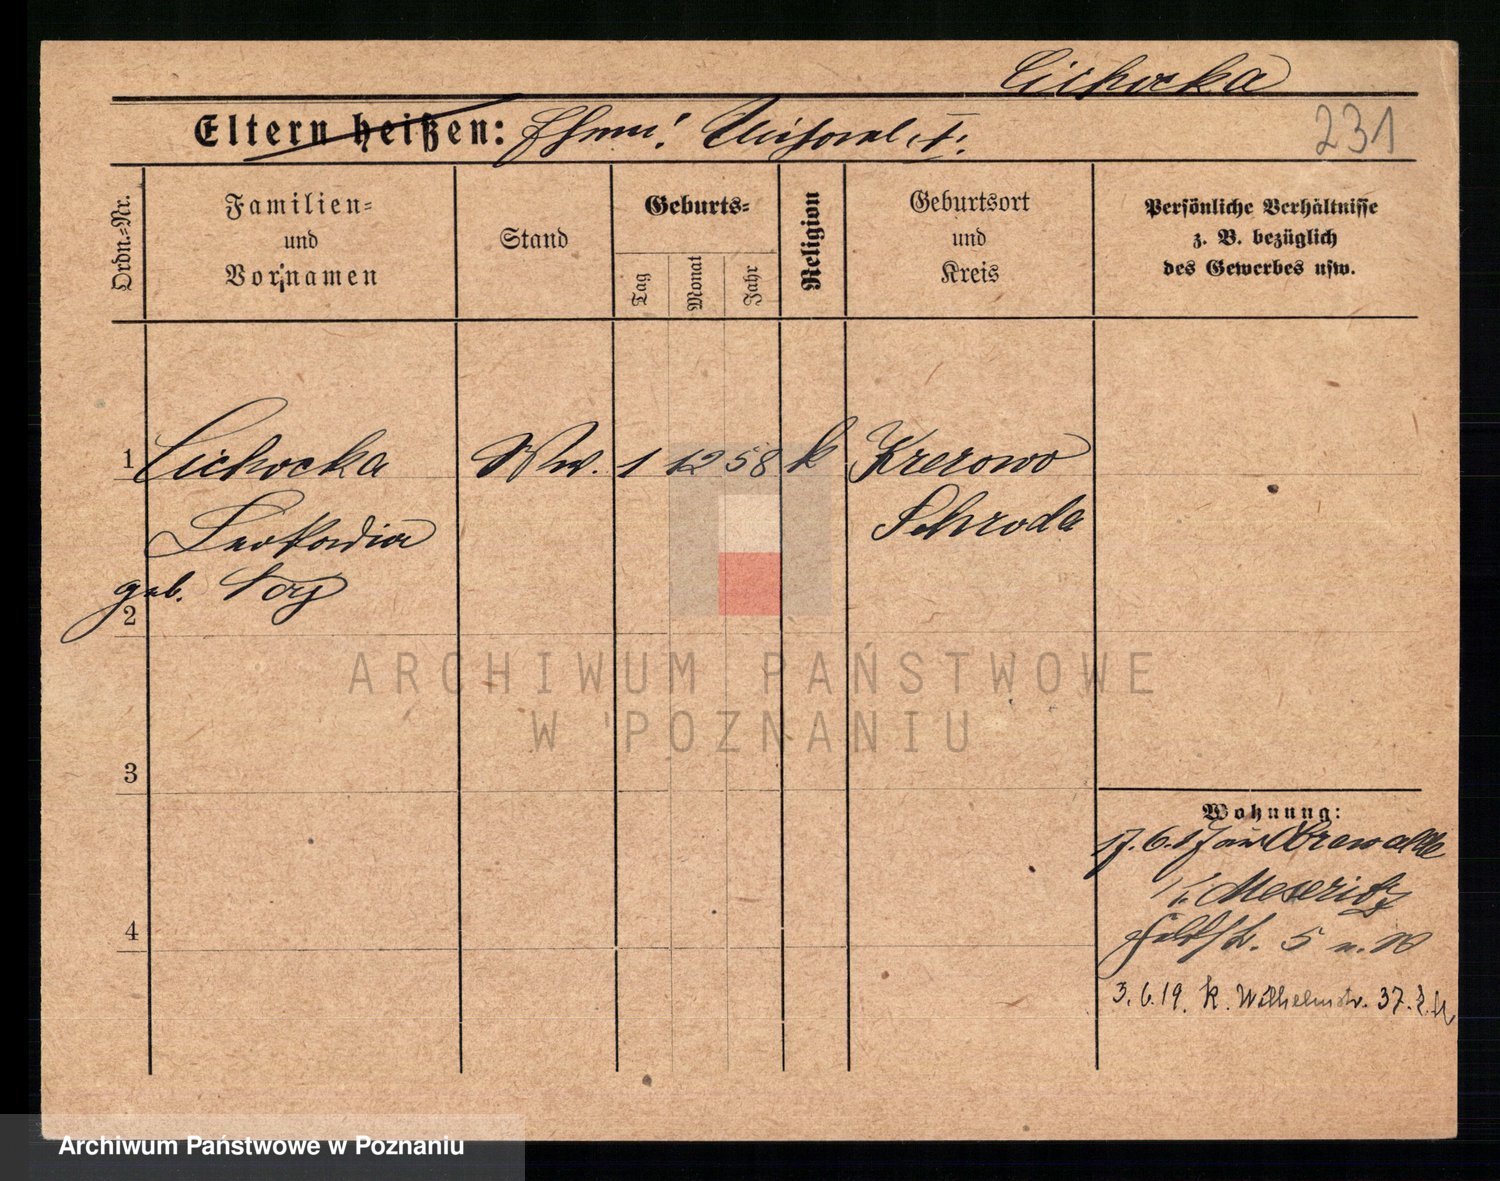 Cichocka
Eltern heißen: Ehem!
231
Ordn.-Nr.
Familien-
und
Vornamen
Stand
Geburts-
Tag
Monat
Jahr
Religion
Geburtsort
und
Kreis
Persönliche Verhältnisse
z. B. bezüglich
des Gewerbes usw.
1 Cichocka Ww. 1 12 58 k Krerowo
Leokadia Schroda
geb.
2
ARCHIWUM PAŃSTWOWE
W POZNANIU
3
4
Wohnung:
17. 6. Obrawalde
Meseritz
5
3. 6. 19. k. Wilhelmstr. 37.
Archiwum Państwowe w Poznaniu